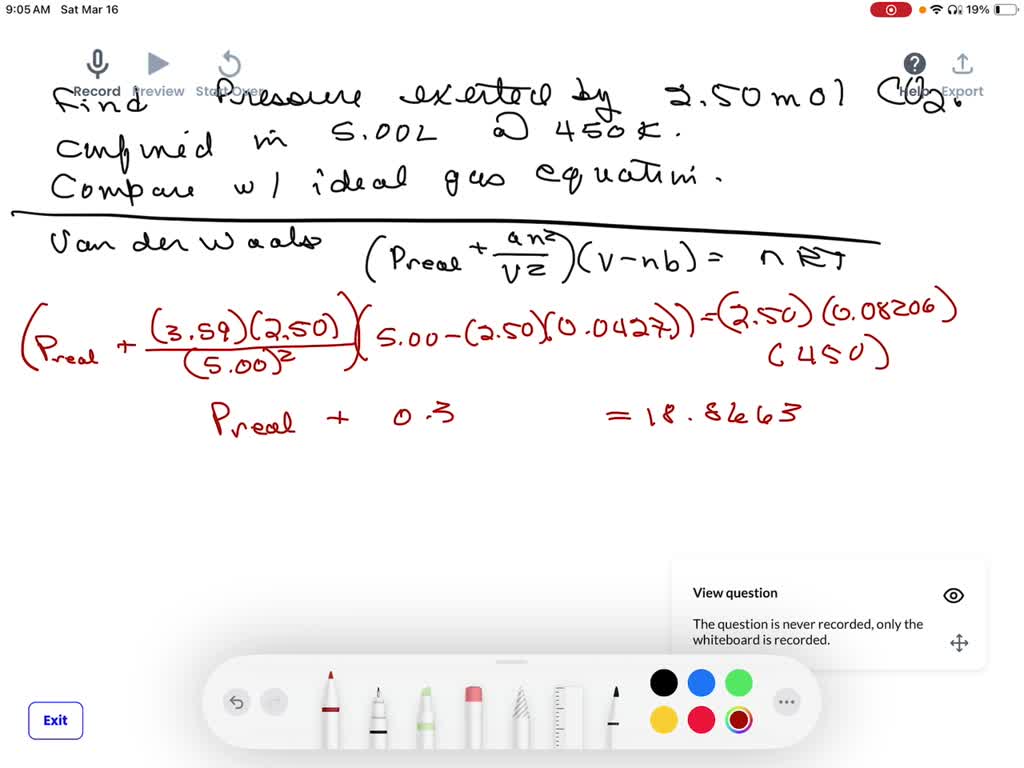 9:05 AM Sat Mar 16 19%
Record Preview Start Over Help Export
Find Pressure exerted by 2.50 mol CO2.
confined in 5.00L @ 450K.
Compare w/ ideal gas equation.
Van der Waals (Preal + an²/V²)(V-nb) = nRT
(Preal + (3.59)(2.50)/(5.00)²)(5.00-(2.50)(0.0427)) = (2.50)(0.08206)
(450)
Preal + 0.3 = 18.8663
View question
The question is never recorded, only the
whiteboard is recorded.
Exit